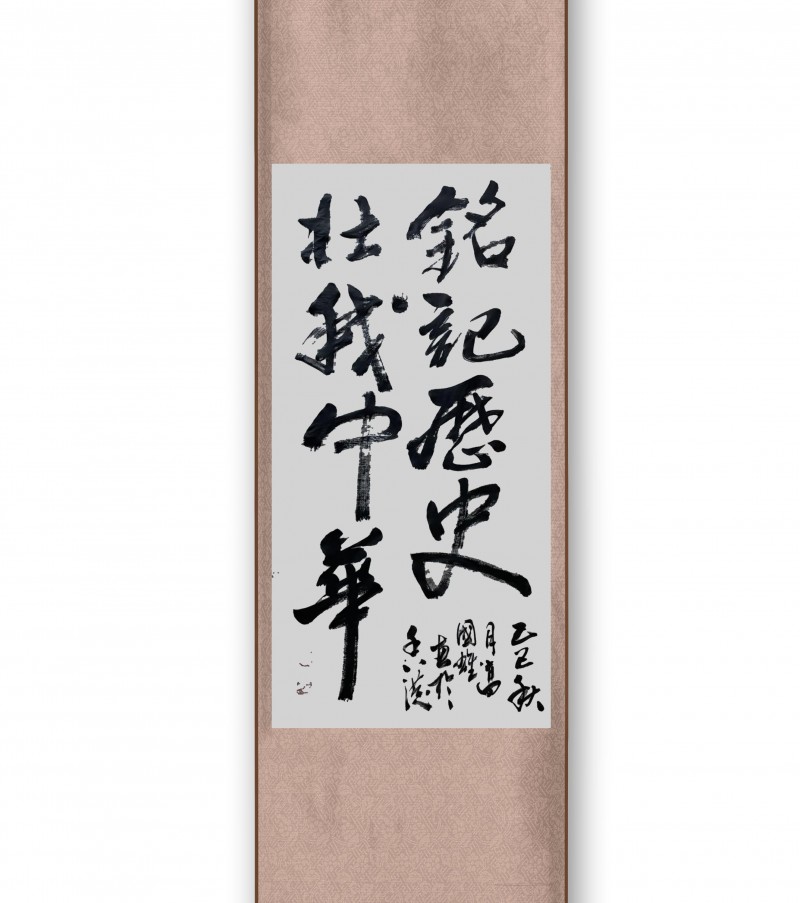 銘記歷史
壯我中華
乙巳秋
月高
國雄
書於
香港